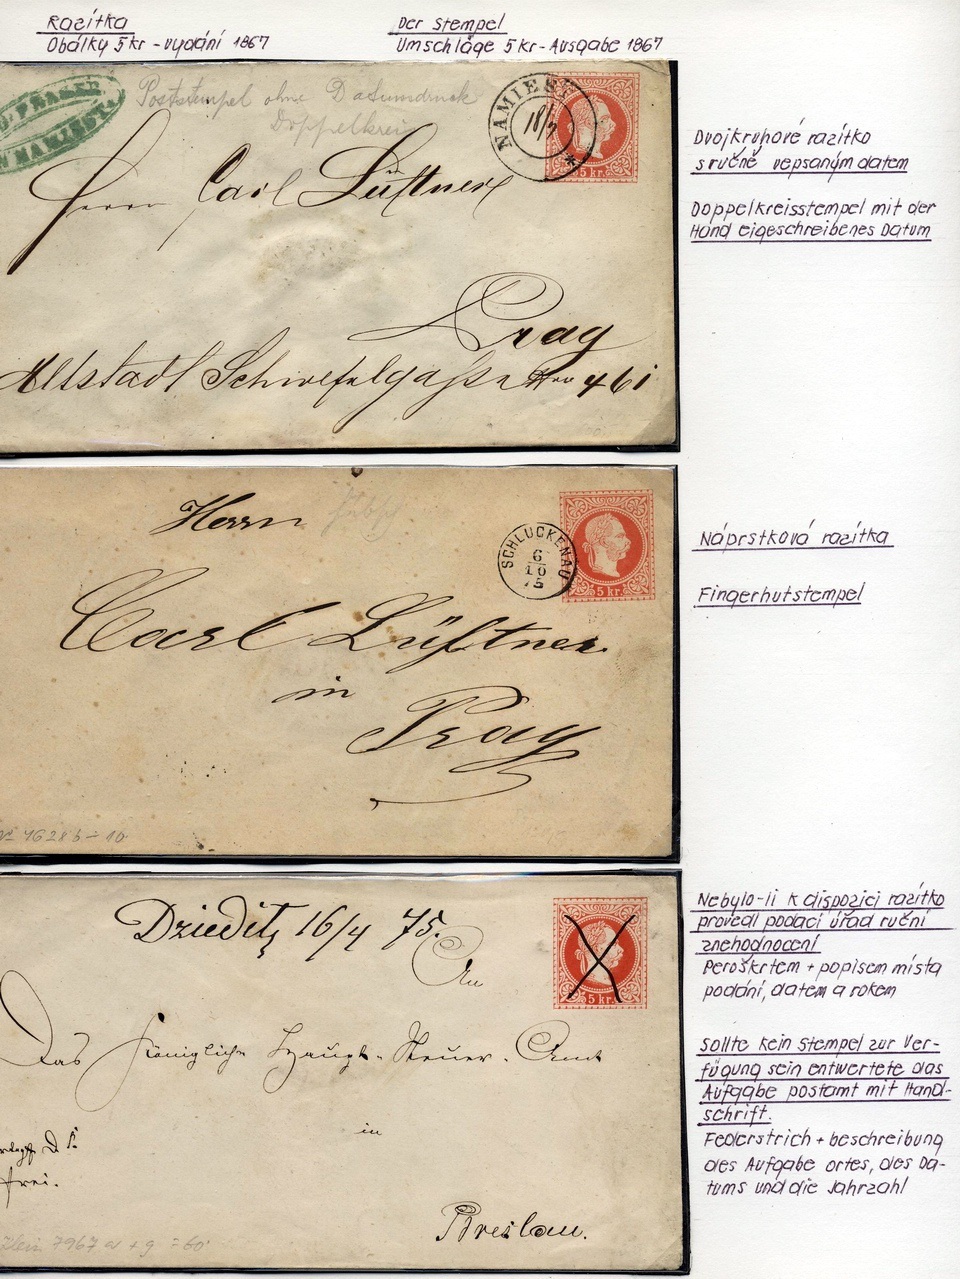 Razítka
Obálky 5 kr - vydání 1867
Der Stempel
Umschläge 5 kr - Ausgabe 1867
PRAGER
NAMIEST.
Poststempel ohne Datumdruck
Doppelkreis
NAMIEST
18/7
*
5 kr.
Herrn Carl Lüftner
Prag
Altstadt Schwefelgasse Nro 461
Dvojkruhové razítko
s ručně vepsaným datem
Doppelkreisstempel mit der
Hand eigeschreibenes Datum
Herrn
SCHLUCKENAU
6
10
75
5 kr.
Carl Lüftner
in
Prag
Náprstková razítka
Fingerhutstempel
Dzieditz 16/4 75.
5 kr.
An
Das Königliche Haupt-Steuer-Amt
in
frei.
Breslau.
Nebylo-li k dispozici razítko
provedl podací úřad ruční
znehodnocení
Peroškrtem + popisem místa
podání, datem a rokem
Sollte kein Stempel zur Ver-
fügung sein entwertete das
Aufgabe postamt mit Hand-
schrift.
Federstrich + beschreibung
des Aufgabe ortes, des Da-
tums und die Jahrzahl